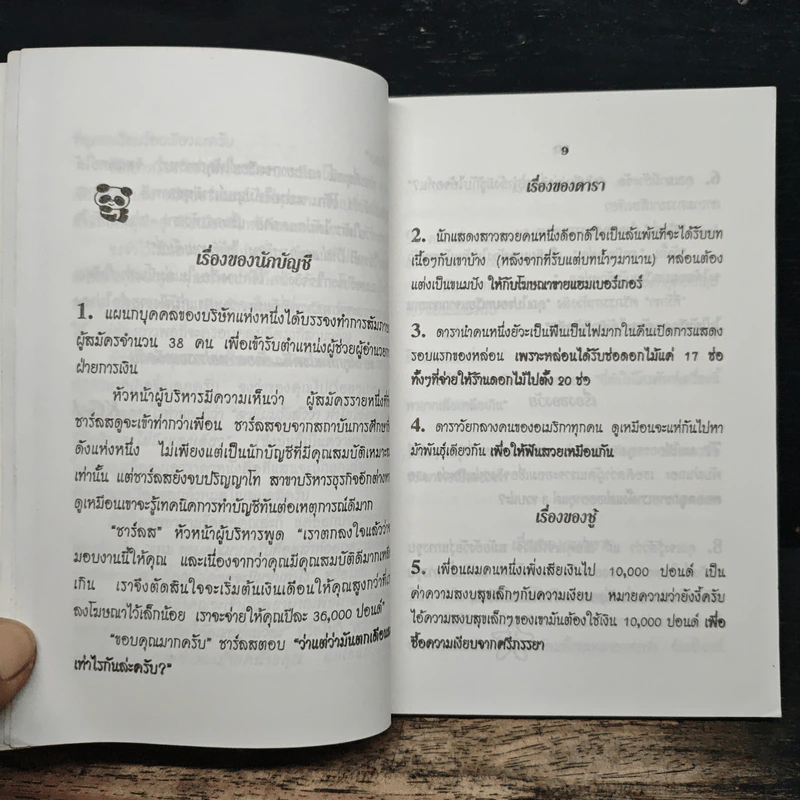 เรื่องของนักบัญชี
1. แผนกบุคคลของบริษัทแห่งหนึ่งได้บรรจงทำการสัมภาษ
ผู้สมัครจำนวน 38 คน เพื่อเข้ารับตำแหน่งผู้ช่วยผู้อำนวยการ
ฝ่ายการเงิน
หัวหน้าผู้บริหารมีความเห็นว่า ผู้สมัครรายหนึ่งที่ชื่อ
ชาร์ลสดูจะเข้าท่ากว่าเพื่อน ชาร์ลสจบจากสถาบันการศึกษาที่
ดังแห่งหนึ่ง ไม่เพียงแต่เป็นนักบัญชีที่มีคุณสมบัติเหมาะสม
เท่านั้น แต่ชาร์ลสยังจบปริญญาโท สาขาบริหารธุรกิจอีกต่างหาก
ดูเหมือนเขาจะรู้เทคนิคการทำบัญชีทันต่อเหตุการณ์ดีมาก
"ชาร์ลส" หัวหน้าผู้บริหารพูด "เราตกลงใจแล้วว่าจะ
มอบงานนี้ให้คุณ และเนื่องจากว่าคุณมีคุณสมบัติดีมากเหลือ
เกิน เราจึงตัดสินใจจะเริ่มต้นเงินเดือนให้คุณสูงกว่าที่เรา
ลงโฆษณาไว้เล็กน้อย เราจะจ่ายให้คุณปีละ 36,000 ปอนด์"
"ขอบคุณมากครับ" ชาร์ลสตอบ "ว่าแต่ว่ามันตกเดือนละ
เท่าไรกันล่ะครับ?"
9
เรื่องของดารา
2. นักแสดงสาวสวยคนหนึ่งดีอกดีใจเป็นล้นพ้นที่จะได้รับบท
เนื้อๆกับเขาบ้าง (หลังจากที่รับแต่บทน้ำๆมานาน) หล่อนต้อง
แต่งเป็นขนมปัง ให้กับโฆษณาขายแฮมเบอร์เกอร์
3. ดารานำคนหนึ่งยัวะเป็นฟืนเป็นไฟมากในคืนเปิดการแสดง
รอบแรกของหล่อน เพราะหล่อนได้รับช่อดอกไม้แค่ 17 ช่อ
ทั้งๆที่จ่ายให้ร้านดอกไม้ไปตั้ง 20 ช่อ
4. ดาราวัยกลางคนของอเมริกาทุกคน ดูเหมือนจะแห่กันไปหา
ม้าพันธุ์เดียวกัน เพื่อให้ฟันสวยเหมือนกัน
เรื่องของชู้
5. เพื่อนผมคนหนึ่งเพิ่งเสียเงินไป 10,000 ปอนด์ เป็น
ค่าความสงบสุขเล็กๆกับความเงียบ หมายความว่ายังงี้ครับ
ไอ้ความสงบสุขเล็กๆของเขามันต้องใช้เงิน 10,000 ปอนด์ เพื่อ
ซื้อความเงียบจากศรีภรรยา